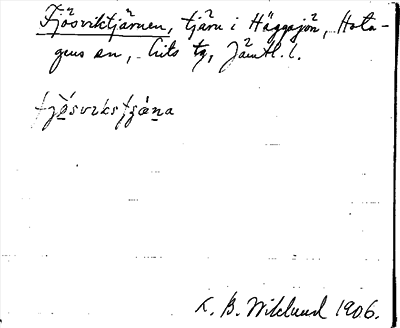 Fjösvikstjärnen, tjärn i Häggsjön, Hota-
gens sn, Lits tg, Jämtl. l.
fjösvikstjäna
K. B. Wiklund 1906.